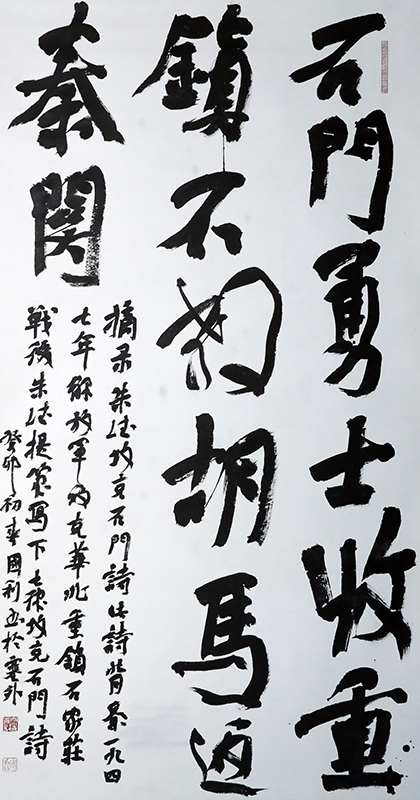 石門勇士收重
鎮不教胡馬返
秦關
摘录朱德攻克石門詩此詩背景一九四
七年解放軍攻克華北重鎮石家莊
戰後朱德提筆寫下七律攻克石門詩
癸卯初春國利书於塞外